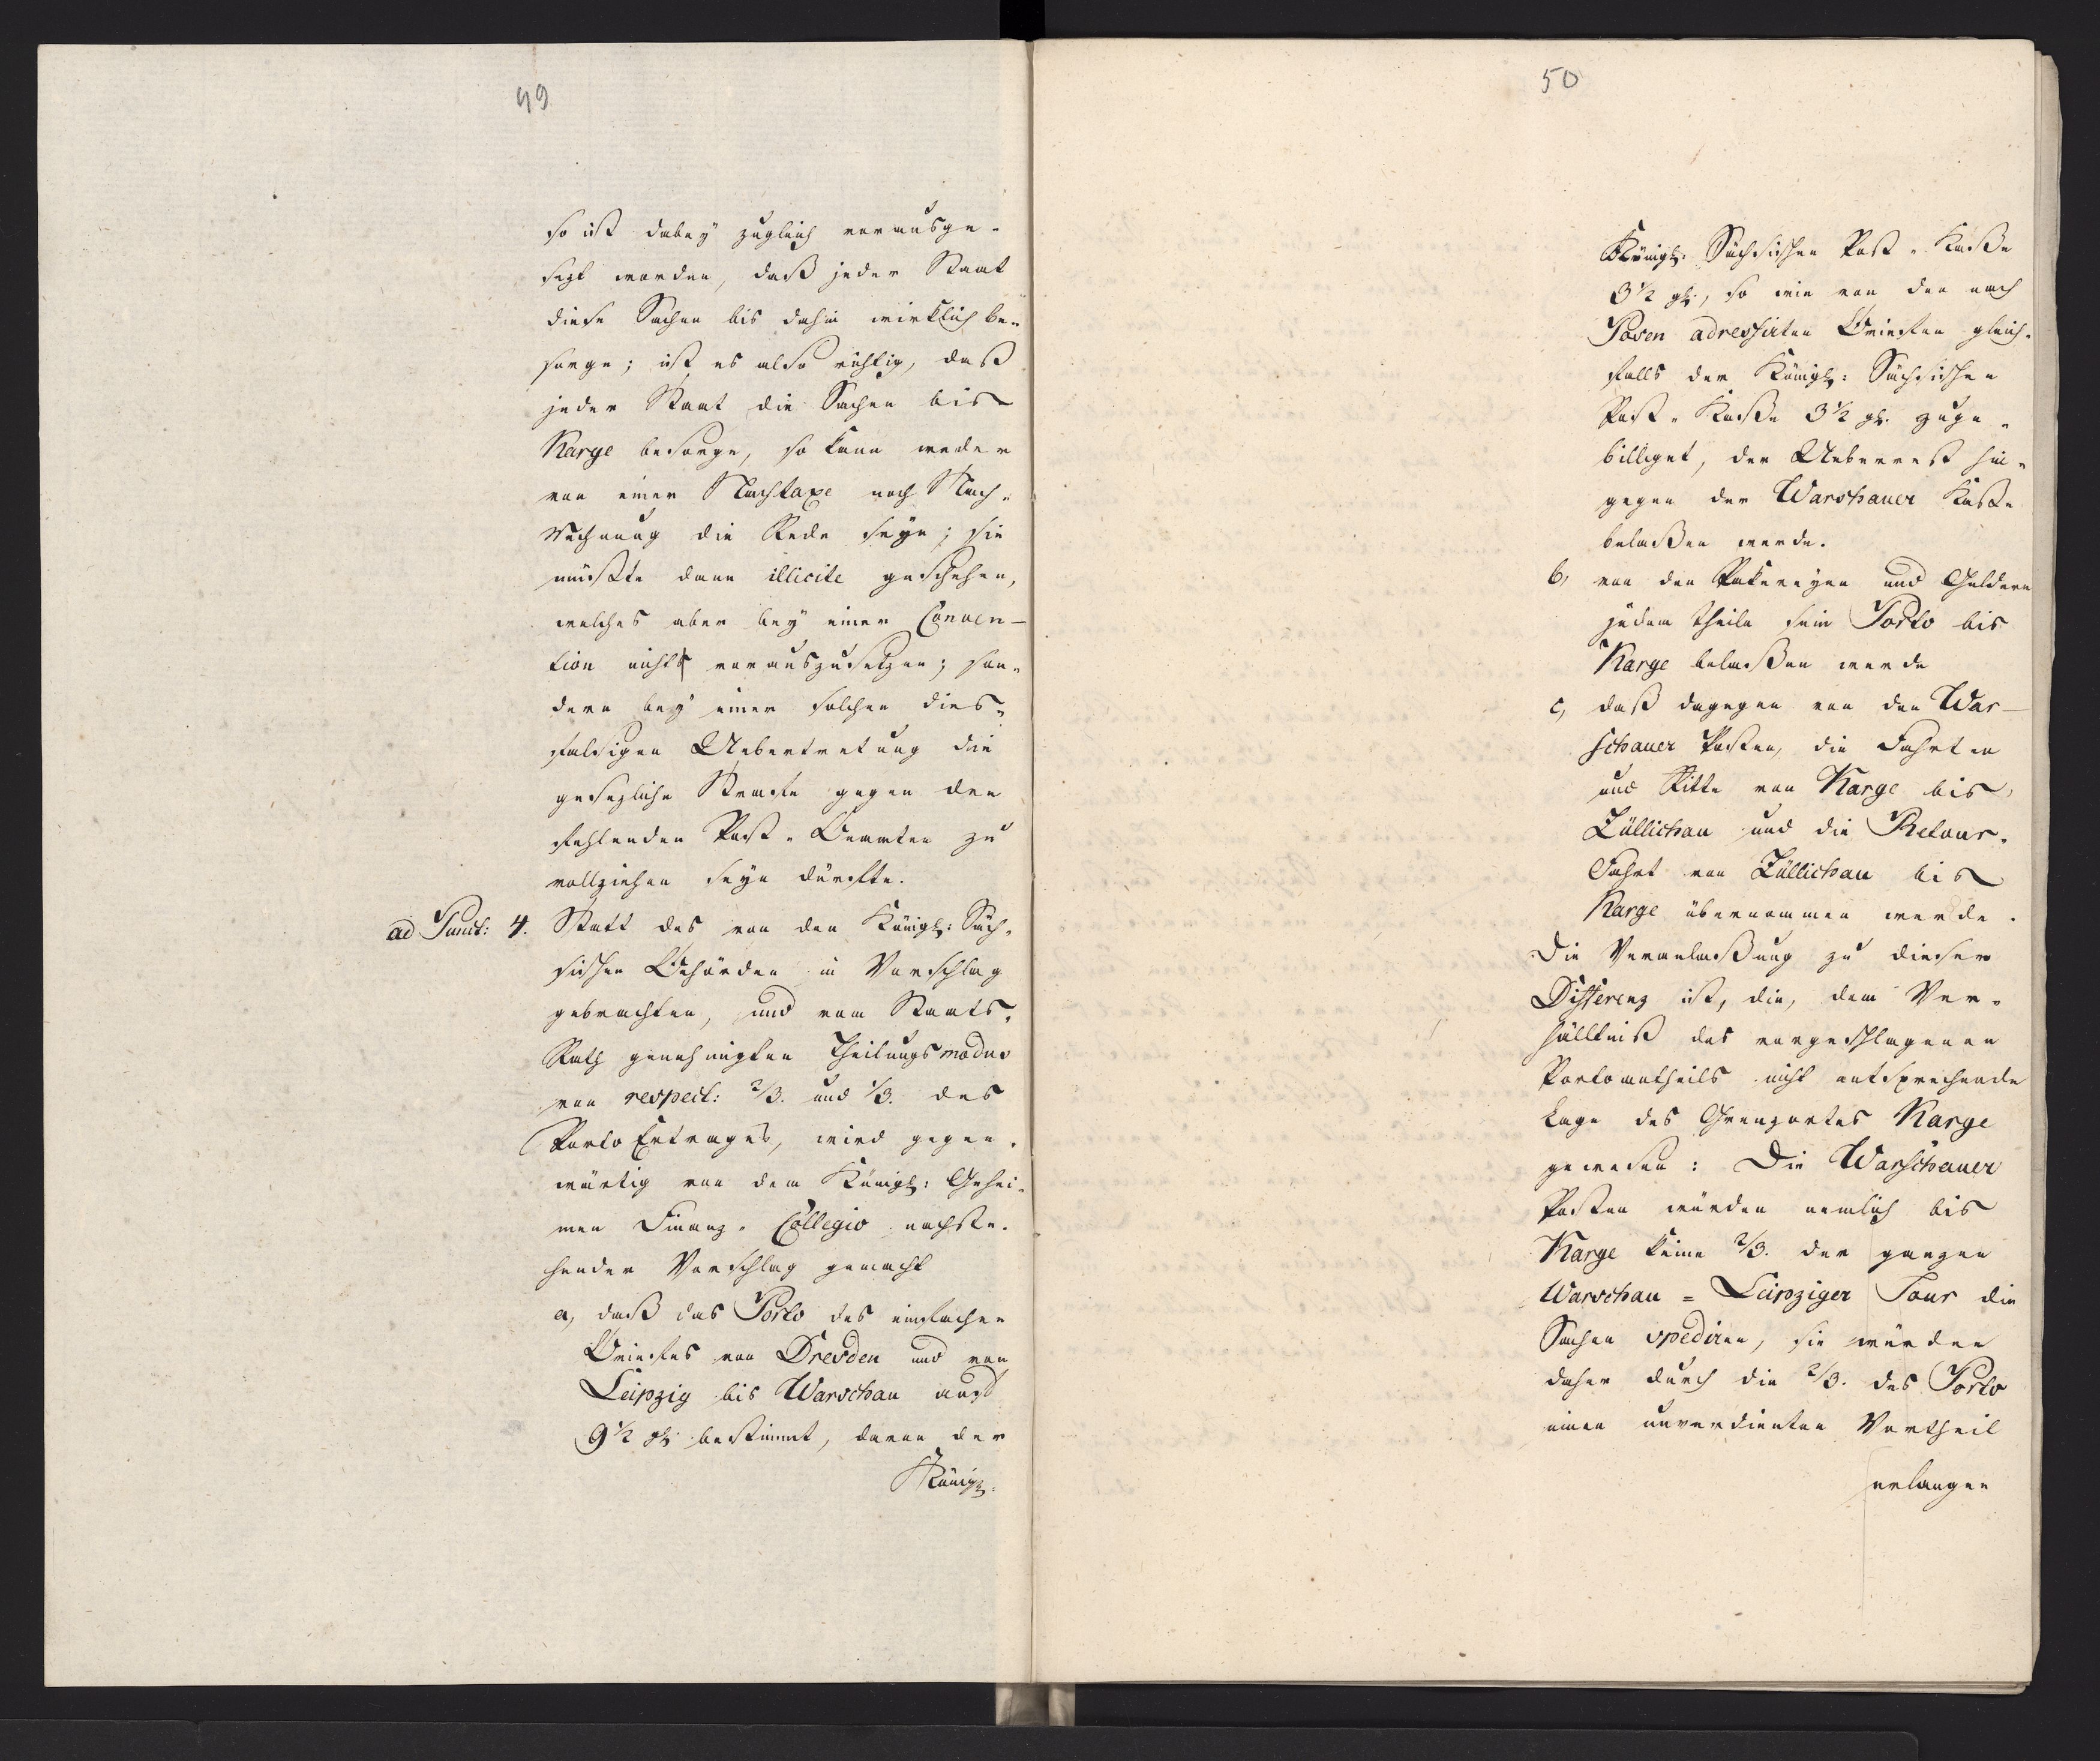 49
so ist dabey zugleich vorausge-
sezt worden, daß jeder Staat
diese Sachen bis dahin wirklich be-
sorge; ist es also richtig, daß
jeder Staat die Sachen bis
Karge besorge, so kann weder
von einer Nachtaxe noch Nach-
rechnung die Rede seyn; sie
müßte dann illicite geschehen,
welches aber bey einer Conven-
tion nicht vorauszusetzen; son-
dern bey einer solchen dies-
falsigen Uebertretung die
gesezliche Strafe gegen den
fehlenden Post-Beamten zu
vollziehen seyn dürfte.
ad Punct: 4. Statt des von den Königl: Säch-
sischen Behörden in Vorschlag
gebrachten, und vom Staats-
Rath genehmigten Theilungsmodus
von respect: 2/3. und 1/3. des
Porto Ertrages, wird gegen-
wärtig von dem Königl: Gehei-
men Finanz-Collegio nachste-
hender Vorschlag gemacht
a, daß das Porto des einfachen
Briefes von Dresden und von
Leipzig bis Warschau auf
9 1/2 gl. bestimmt, davon der
Königl.
50
Königl: Sächsischen Post-Kaße
3 1/2 gl., so wie von den nach
Posen adressirten Briefen gleich-
falls der Königl: Sächsischen
Post-Kaße 3 1/2 gl. zuge-
billiget, der Ueberrest hin-
gegen der Warschauer Kaße
belaßen werde.
b, von den Pakereyen und Geldern
jedem Theile sein Porto bis
Karge belaßen werde
c, daß dagegen von den War-
schauer Posten, die Fahrten
und Ritte von Karge bis
Züllichau und die Retour-
Fahrt von Züllichau bis
Karge übernommen werde.
Die Veranlaßung zu dieser
Differenz ist, die, dem Ver-
hälltniß des vorgeschlagenen
Portoantheils nicht entsprechende
Lage des Grenzortes Karge
gewesen: Die Warschauer
Posten würden nemlich bis
Karge keine 2/3. der ganzen
Warschau = Leipziger Tour die
Sachen spediren, sie würden
daher durch die 2/3. des Porto
einen unverdienten Vortheil
erlangen